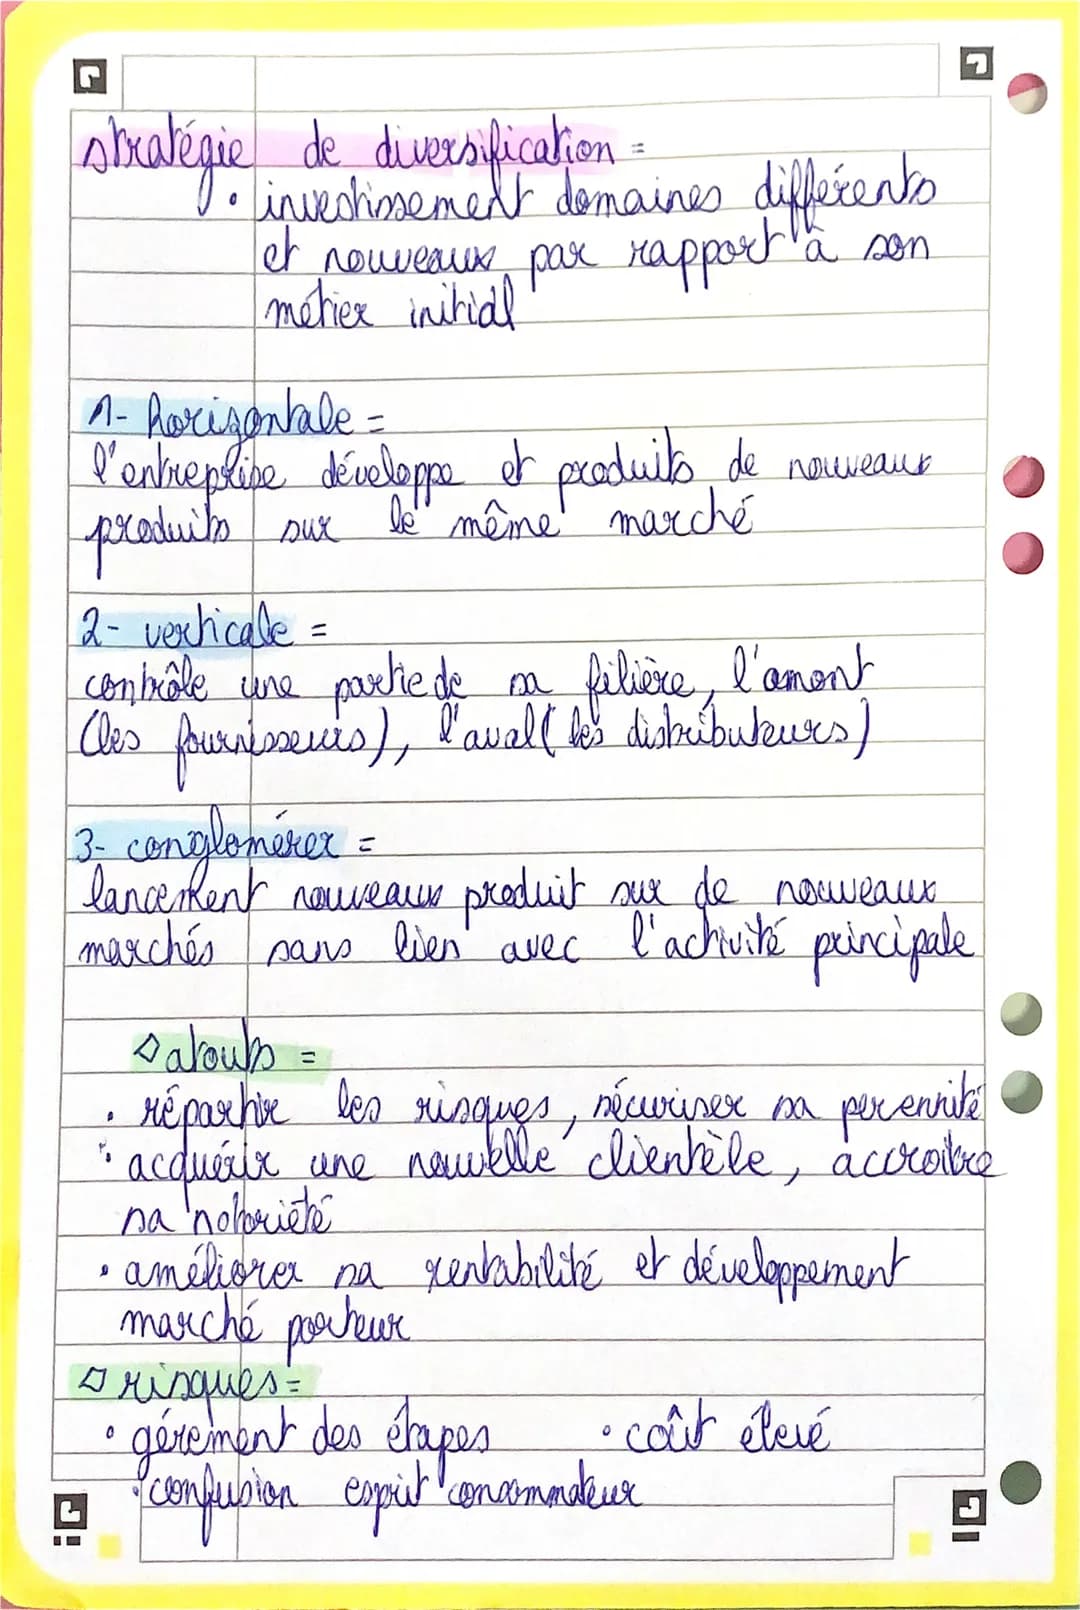 stratégie de diversification =
• investissement domaines différents
et nouveaux par rapport à son
métier initial
1- horizontale =
l'entreprise développe et produits de nouveaux
produits sur le même marché
2- verticale =
contrôle une partie de sa filière, l'amont
(les fournisseurs), l'aval (les distributeurs)
3- conglomérer =
lancement nouveaux produit sur de nouveaux
marchés sans lien avec l'activité principale
atouts =
• répartir les risques, sécuriser sa perennité
• acquérir une nouvelle clientèle, accroitre
sa notoriété
• améliorer sa rentabilité et développement
marché porteur
risques =
• gérement des étapes • coût élevé
• confusion esprit consommateur